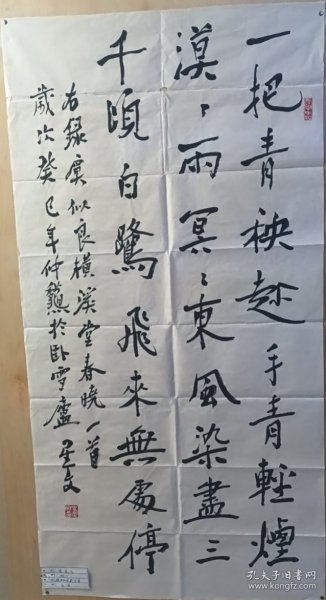 一把青秧趁手青輕煙
漠々雨冥々東風染盡三
千頃白鷺飛來無處停
右録虞似良橫溪堂春曉一首
歲次癸巳年仲龝於卧雪廬星文
孔夫子旧书网